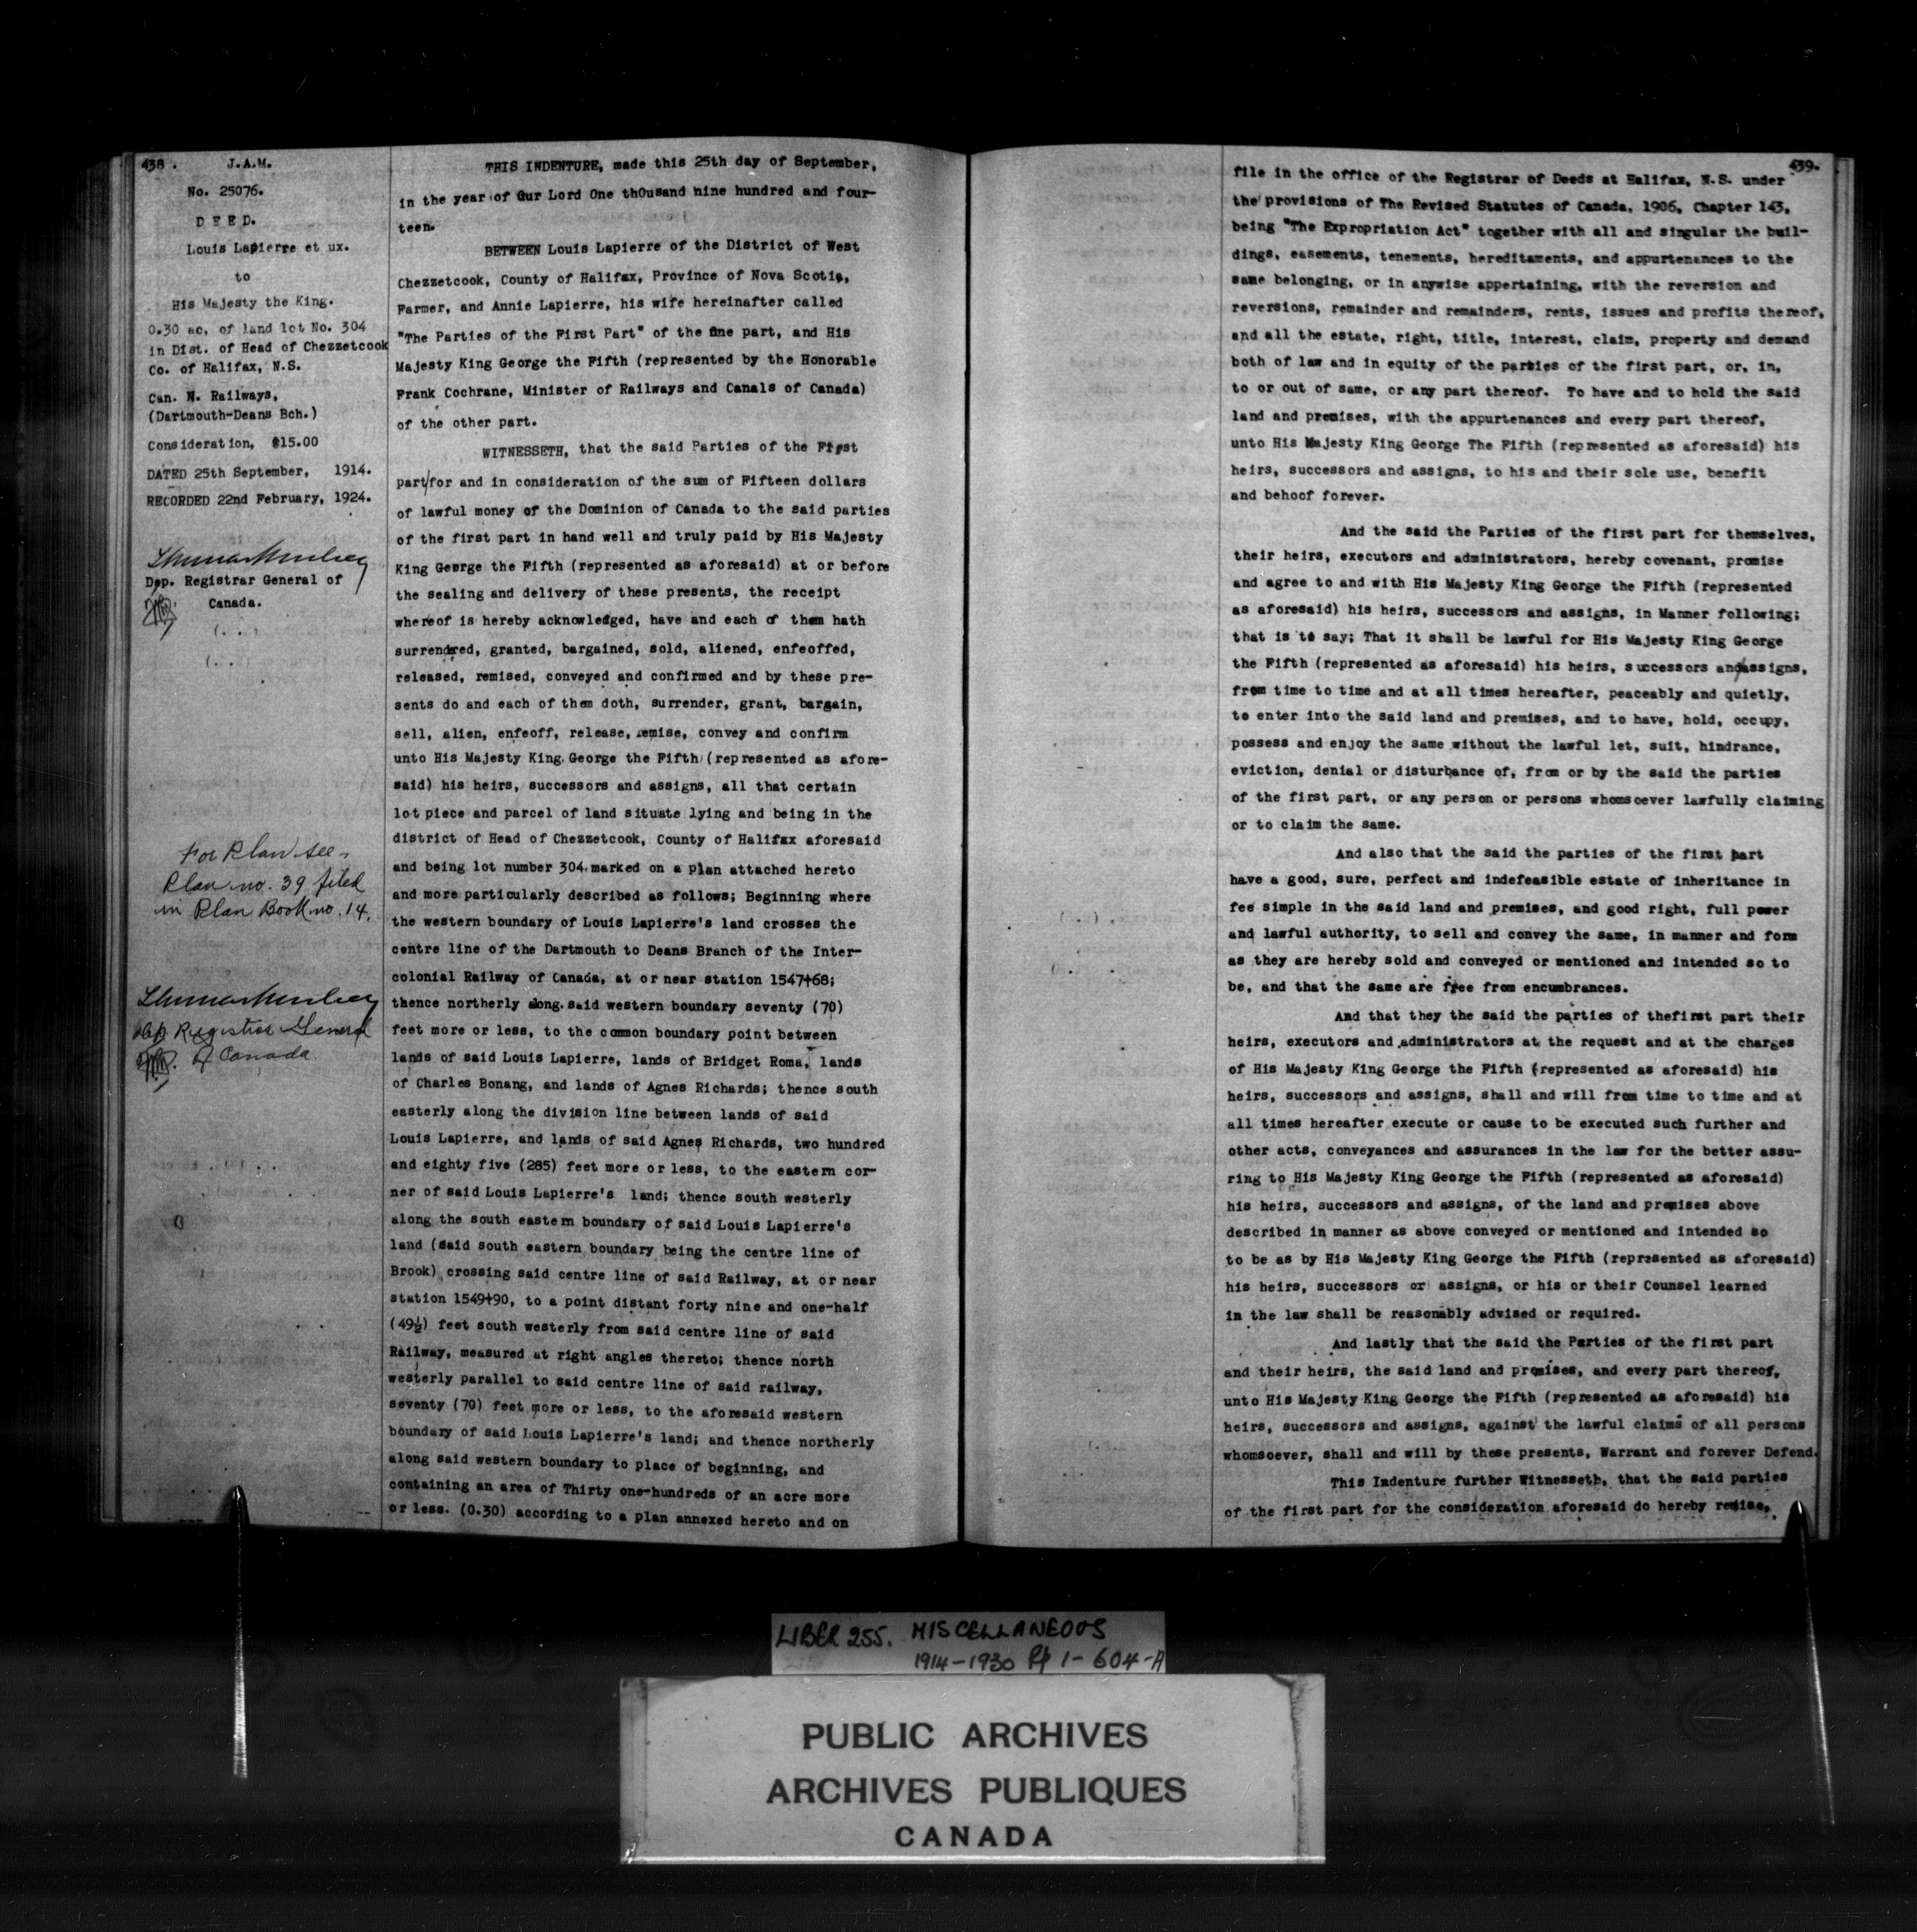 438. J.A.M.
No. 25076.
D E E D.
Louis Lapierre et ux.
to
His Majesty the King.
0.30 ac. of land lot No. 304
in Dist. of Head of Chezzetcook
Co. of Halifax, N.S.
Can. N. Railways,
(Dartmouth-Deans Bch.)
Consideration, $15.00
DATED 25th September, 1914.
RECORDED 22nd February, 1924.
Dep. Registrar General of
Canada.
For Plan see
Plan no. 39 filed
in Plan Book no. 14.
Dep. Registrar General
of Canada
THIS INDENTURE, made this 25th day of September,
in the year of Our Lord One thOusand nine hundred and four-
teen.
BETWEEN Louis Lapierre of the District of West
Chezzetcook, County of Halifax, Province of Nova Scotia,
Farmer, and Annie Lapierre, his wife hereinafter called
"The Parties of the First Part" of the One part, and His
Majesty King George the Fifth (represented by the Honorable
Frank Cochrane, Minister of Railways and Canals of Canada)
of the other part.
WITNESSETH, that the said Parties of the First
part/for and in consideration of the sum of Fifteen dollars
of lawful money of the Dominion of Canada to the said parties
of the first part in hand well and truly paid by His Majesty
King George the Fifth (represented as aforesaid) at or before
the sealing and delivery of these presents, the receipt
whereof is hereby acknowledged, have and each of them hath
surrendred, granted, bargained, sold, aliened, enfeoffed,
released, remised, conveyed and confirmed and by these pre-
sents do and each of them doth, surrender, grant, bargain,
sell, alien, enfeoff, release, remise, convey and confirm
unto His Majesty King George the Fifth (represented as afore-
said) his heirs, successors and assigns, all that certain
lot piece and parcel of land situate lying and being in the
district of Head of Chezzetcook, County of Halifax aforesaid
and being lot number 304 marked on a plan attached hereto
and more particularly described as follows; Beginning where
the western boundary of Louis Lapierre's land crosses the
centre line of the Dartmouth to Deans Branch of the Inter-
colonial Railway of Canada, at or near station 1547+68;
thence northerly along said western boundary seventy (70)
feet more or less, to the common boundary point between
lands of said Louis Lapierre, lands of Bridget Roma, lands
of Charles Bonang, and lands of Agnes Richards; thence south
easterly along the division line between lands of said
Louis Lapierre, and lands of said Agnes Richards, two hundred
and eighty five (285) feet more or less, to the eastern cor-
ner of said Louis Lapierre's land; thence south westerly
along the south eastern boundary of said Louis Lapierre's
land (said south eastern boundary being the centre line of
Brook) crossing said centre line of said Railway, at or near
station 1549+90, to a point distant forty nine and one-half
(49½) feet south westerly from said centre line of said
Railway, measured at right angles thereto; thence north
westerly parallel to said centre line of said railway,
seventy (70) feet more or less, to the aforesaid western
boundary of said Louis Lapierre's land; and thence northerly
along said western boundary to place of beginning, and
containing an area of Thirty one-hundreds of an acre more
or less. (0.30) according to a plan annexed hereto and on
439.
file in the office of the Registrar of Deeds at Halifax, N.S. under
the provisions of The Revised Statutes of Canada, 1906, Chapter 143,
being "The Expropriation Act" together with all and singular the buil-
dings, easements, tenements, hereditaments, and appurtenances to the
same belonging, or in anywise appertaining, with the reversion and
reversions, remainder and remainders, rents, issues and profits thereof,
and all the estate, right, title, interest, claim, property and demand
both of law and in equity of the parties of the first part, or, in,
to or out of same, or any part thereof. To have and to hold the said
land and premises, with the appurtenances and every part thereof,
unto His Majesty King George The Fifth (represented as aforesaid) his
heirs, successors and assigns, to his and their sole use, benefit
and behoof forever.
And the said the Parties of the first part for themselves,
their heirs, executors and administrators, hereby covenant, promise
and agree to and with His Majesty King George the Fifth (represented
as aforesaid) his heirs, successors and assigns, in Manner following;
that is to say; That it shall be lawful for His Majesty King George
the Fifth (represented as aforesaid) his heirs, successors and/assigns,
from time to time and at all times hereafter, peaceably and quietly,
to enter into the said land and premises, and to have, hold, occupy,
possess and enjoy the same without the lawful let, suit, hindrance,
eviction, denial or disturbance of, from or by the said the parties
of the first part, or any person or persons whomsoever lawfully claiming
or to claim the same.
And also that the said the parties of the first part
have a good, sure, perfect and indefeasible estate of inheritance in
fee simple in the said land and premises, and good right, full power
and lawful authority, to sell and convey the same, in manner and form
as they are hereby sold and conveyed or mentioned and intended so to
be, and that the same are free from encumbrances.
And that they the said the parties of thefirst part their
heirs, executors and administrators at the request and at the charges
of His Majesty King George the Fifth (represented as aforesaid) his
heirs, successors and assigns, shall and will from time to time and at
all times hereafter execute or cause to be executed such further and
other acts, conveyances and assurances in the law for the better assu-
ring to His Majesty King George the Fifth (represented as aforesaid)
his heirs, successors and assigns, of the land and premises above
described in manner as above conveyed or mentioned and intended so
to be as by His Majesty King George the Fifth (represented as aforesaid)
his heirs, successors or assigns, or his or their Counsel learned
in the law shall be reasonably advised or required.
And lastly that the said the Parties of the first part
and their heirs, the said land and premises, and every part thereof,
unto His Majesty King George the Fifth (represented as aforesaid) his
heirs, successors and assigns, against the lawful claims of all persons
whomsoever, shall and will by these presents, Warrant and forever Defend.
This Indenture further Witnesseth, that the said parties
of the first part for the consideration aforesaid do hereby remise,
LIBER 255. MISCELLANEOUS
1914-1930 Pp 1-604-A
PUBLIC ARCHIVES
ARCHIVES PUBLIQUES
CANADA